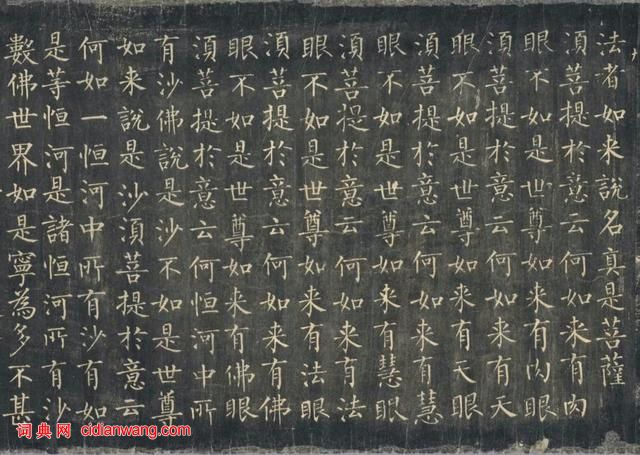 法者如来說名真是菩薩
須菩提於意云何如来有肉
眼不如是世尊如来有肉眼
須菩提於意云何如来有天
眼不如是世尊如来有天眼
須菩提於意云何如来有慧
眼不如是世尊如来有慧眼
須菩提於意云何如来有法
眼不如是世尊如来有法眼
須菩提於意云何如来有佛
眼不如是世尊如来有佛眼
須菩提於意云何恒河中所
有沙佛說是沙不如是世尊
如来說是沙須菩提於意云
何如一恒河中所有沙有如
是等恒河是諸恒河所有沙
數佛世界如是寧為多不甚
词典网 cidianwang.com